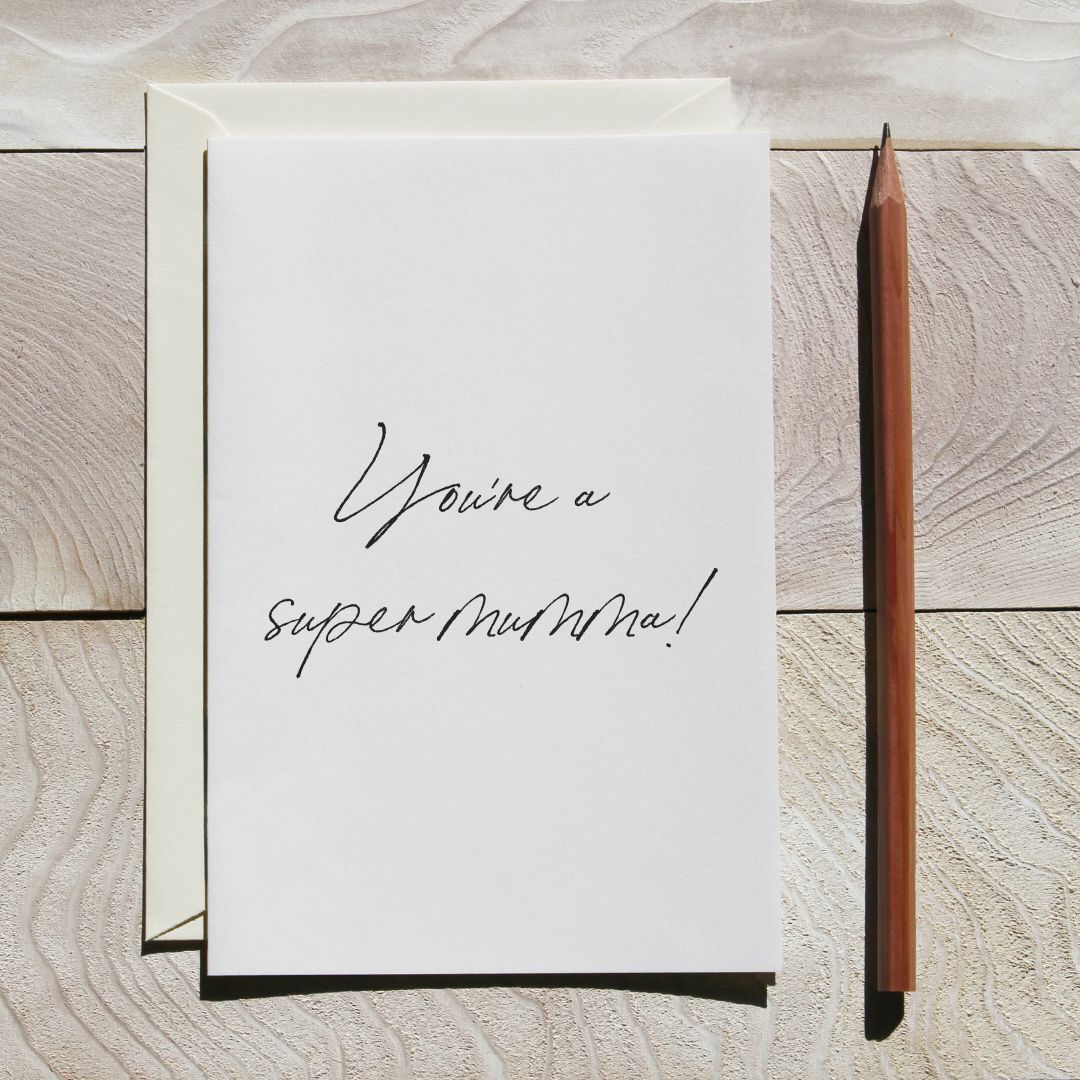 You're a
super mumma!